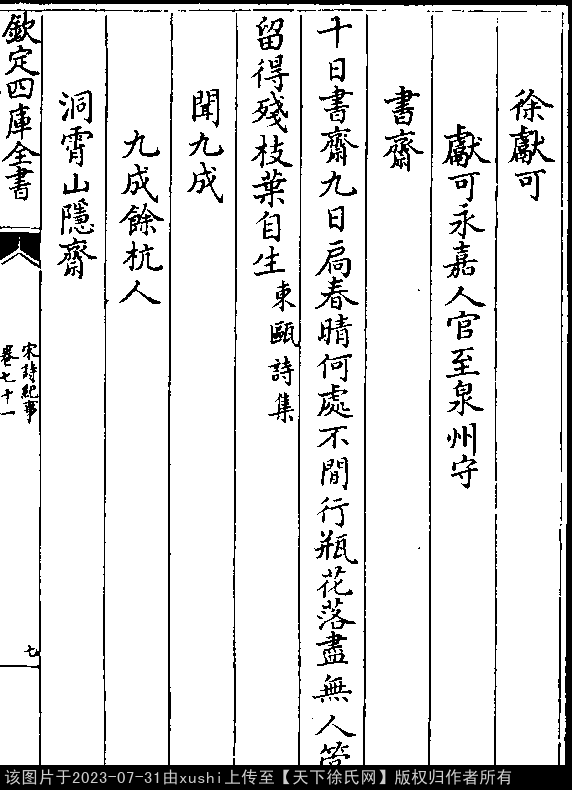 徐獻可
獻可永嘉人官至泉州守
書齋
十日書齋九日扃春晴何處不閒行瓶花落盡無人管
留得殘枝葉自生東甌詩集
聞九成
九成餘杭人
洞霄山隱齋
欽定四庫全書
宋詩紀事
卷七十一
七
该图片于2023-07-31由xushi上传至【天下徐氏网】版权归作者所有